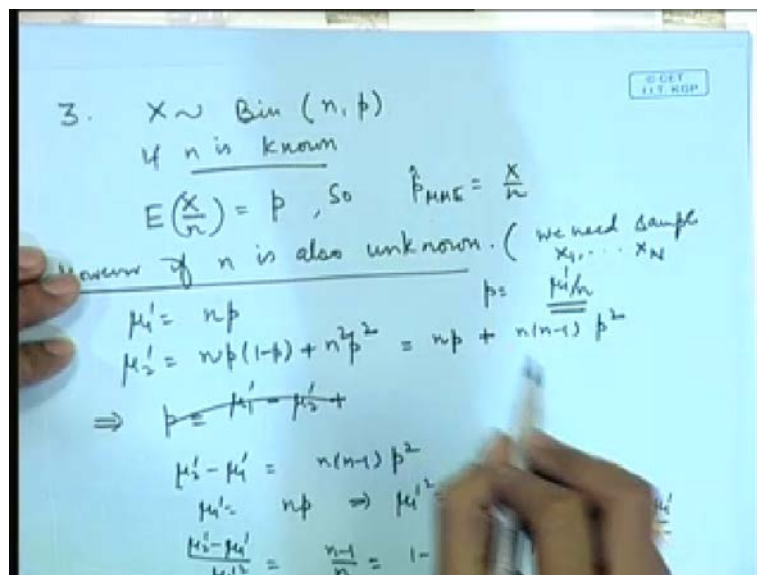 © CET
I.I.T. KGP
3. X ~ Bin (n, p)
If n is known
E(X/n) = p, So p̂_MME = X/n
However if n is also unknown. (We need sample
X₁, ... X_N
p = μ₁'/n
μ₁' = np
μ₂' = np(1-p) + n²p² = np + n(n-1) p²
⇒ p = μ₁' - μ₂' +
μ₂' - μ₁' = n(n-1) p²
μ₁' = np ⇒ μ₁'² =
μ₂' - μ₁' / μ₁'² = n-1 / n = 1 -